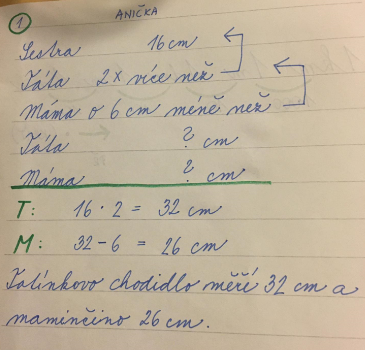 ANIČKA
1
Sestra 16 cm
Táta 2x více než
Máma o 6 cm méně než
Táta ? cm
Máma ? cm
T: 16 · 2 = 32 cm
M: 32 - 6 = 26 cm
Tatínkovo chodidlo měří 32 cm a
maminčino 26 cm.